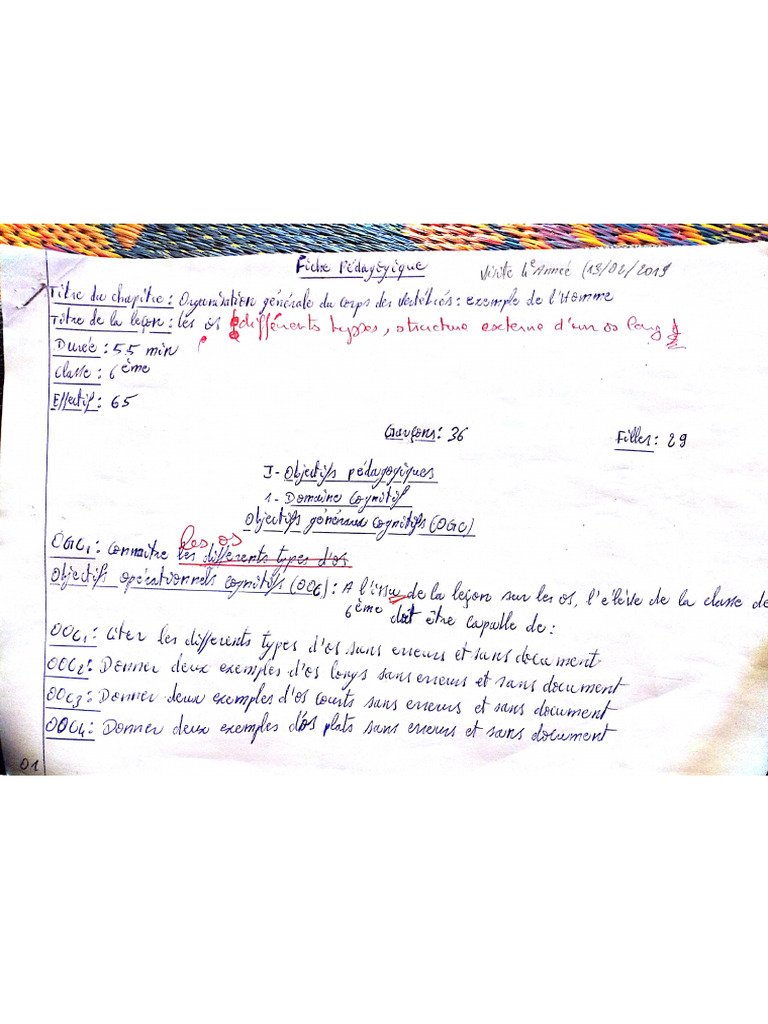 Fiche Pédagogique
Visite 4e Année (19/02/2019
Titre du chapitre : Organisation générale du corps des vertébrés : exemple de l'Homme
Titre de la leçon : les os : différents types, structure externe d'un os long
Durée : 55 min
Classe : 6ème
Effectif : 65
Garçons : 36 Filles : 29
I- Objectifs pédagogiques
1- Domaine Cognitif
Objectifs généraux cognitifs (OGC)
les os
OGC1 : Connaître les différents types d'os
Objectifs opérationnels cognitifs (OOC) : A l'issu de la leçon sur les os, l'élève de la classe de
6ème doit être capable de :
OOC1 : Citer les différents types d'os sans erreurs et sans document
OOC2 : Donner deux exemples d'os longs sans erreurs et sans document
OOC3 : Donner deux exemples d'os courts sans erreurs et sans document
OOC4 : Donner deux exemples d'os plats sans erreurs et sans document
01